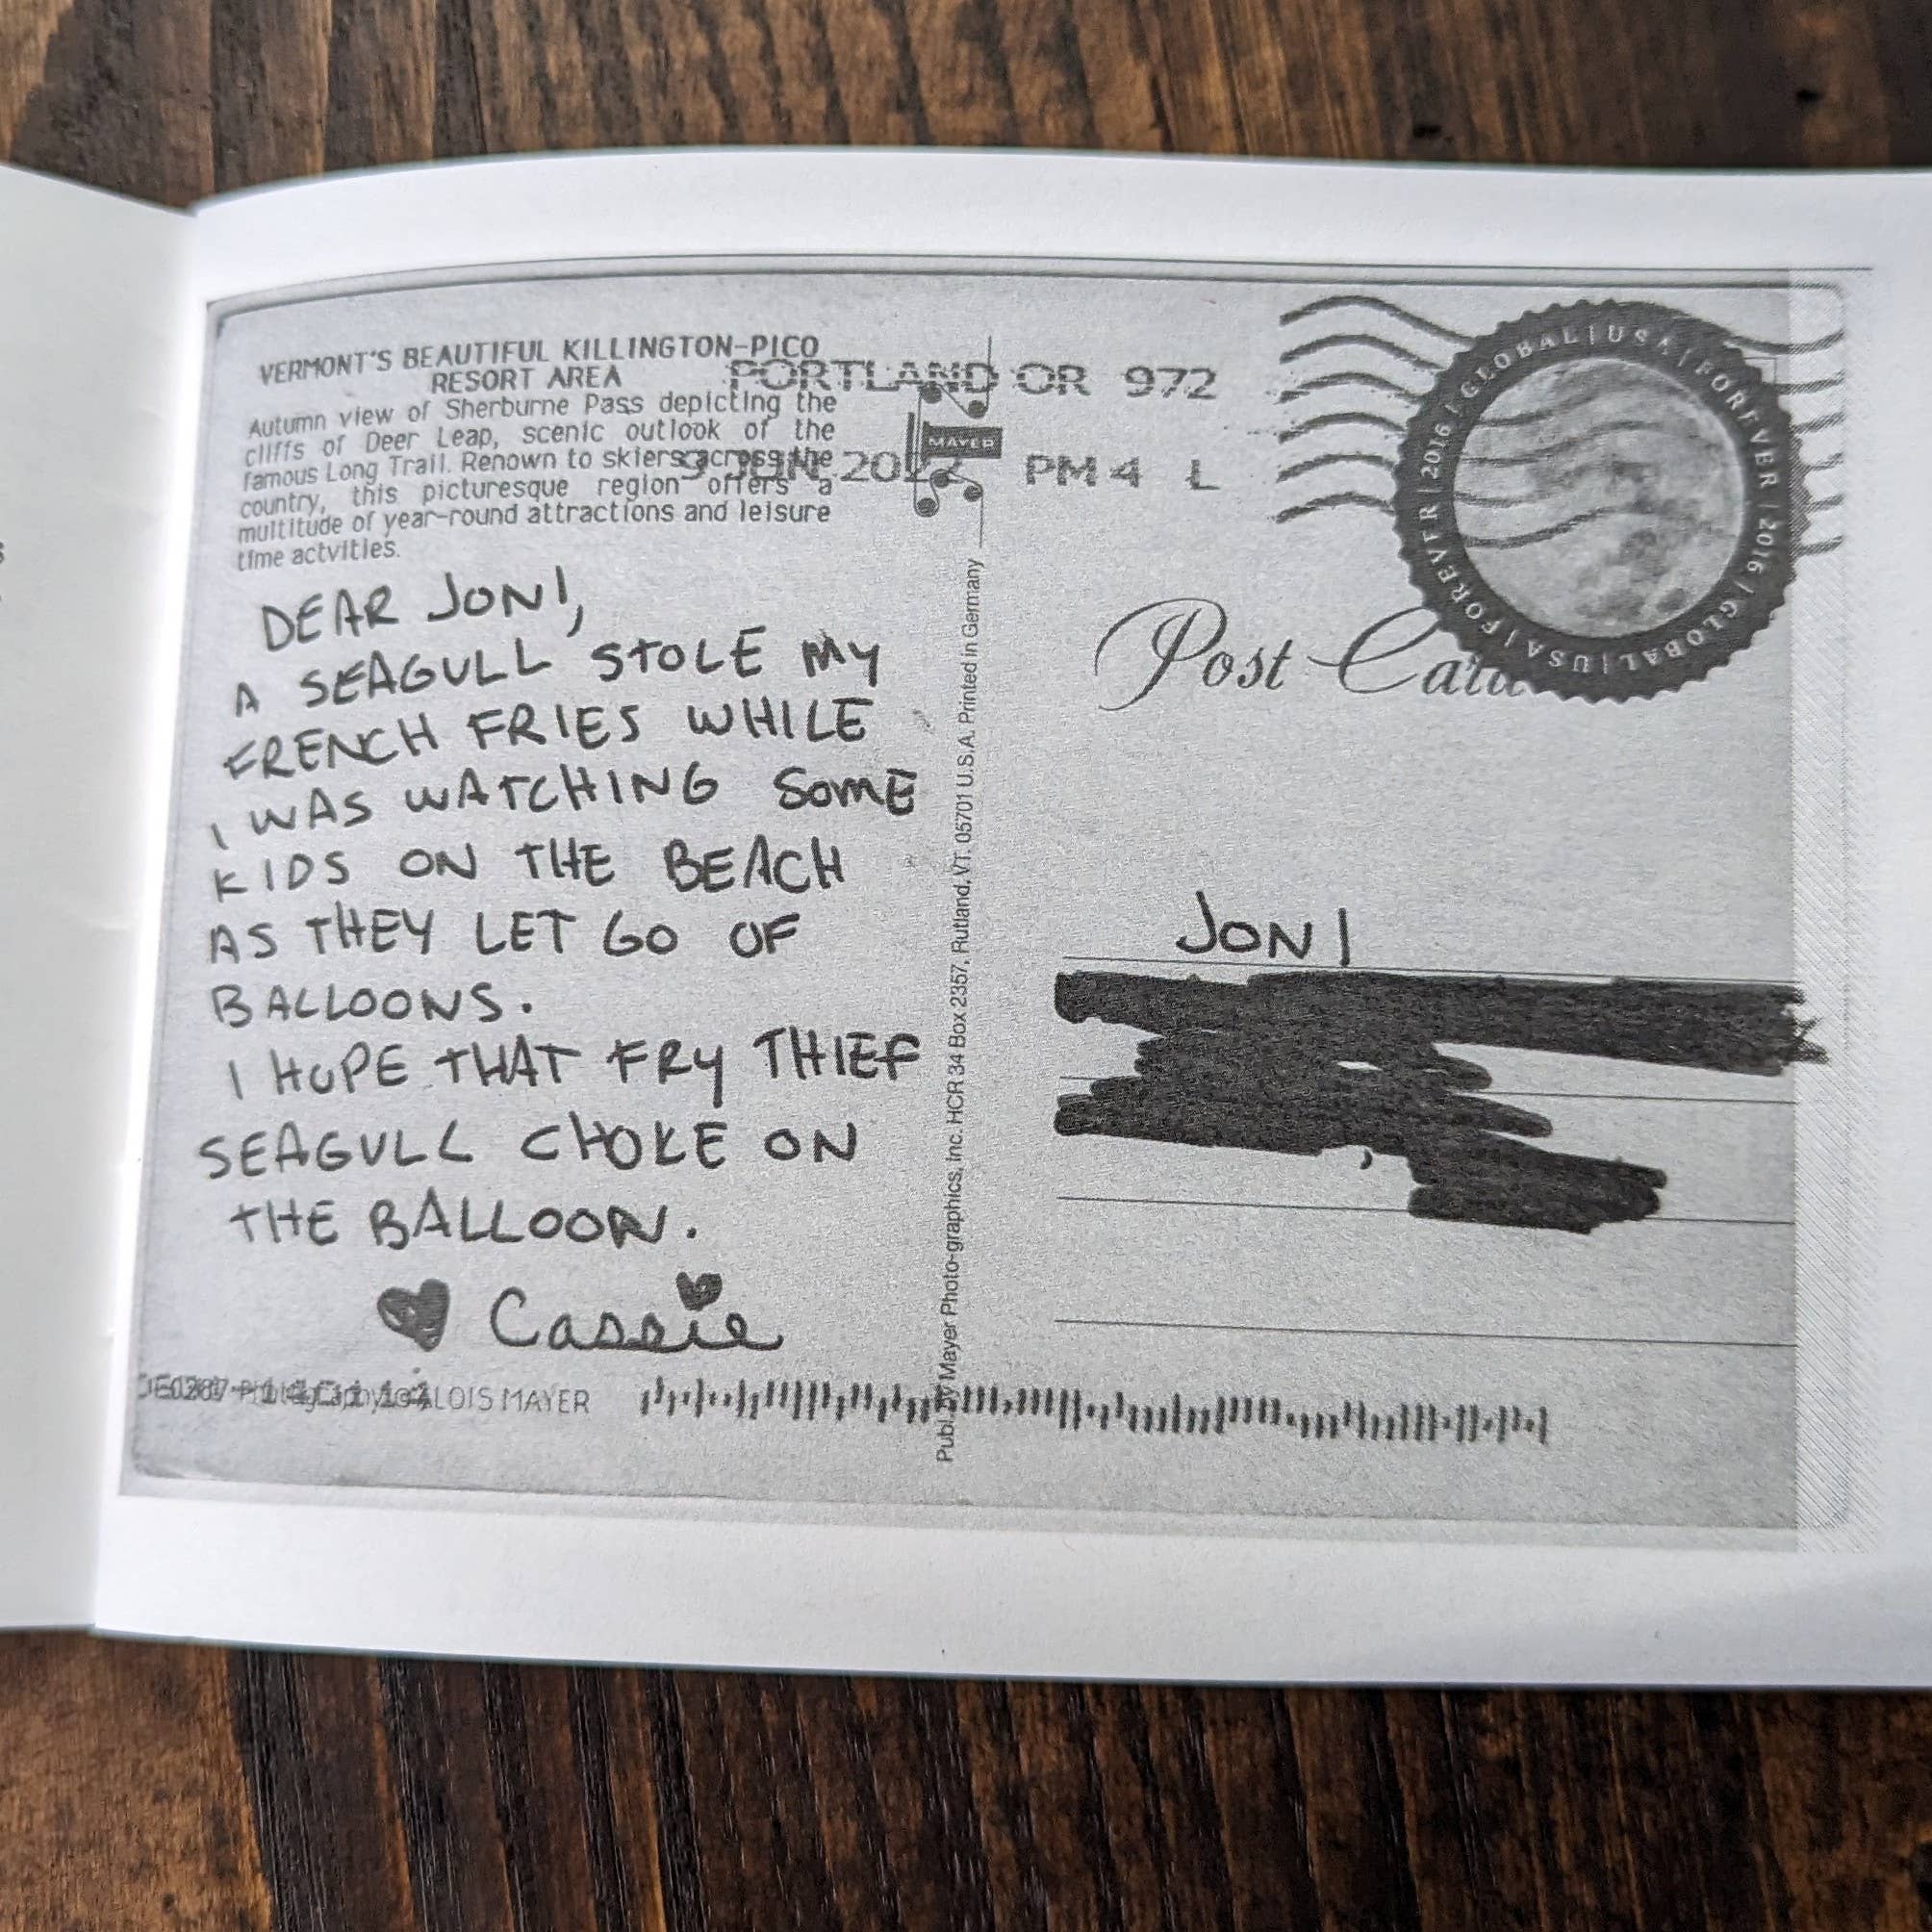 VERMONT'S BEAUTIFUL KILLINGTON-PICO
RESORT AREA
Autumn view of Sherburne Pass depicting the
cliffs of Deer Leap, scenic outlook of the
famous Long Trail. Renown to skiers across the
country, this picturesque region offers a
multitude of year-round attractions and leisure
time actvities.
PORTLAND OR 972
JUN PM 4 L
MAYER
GLOBAL | USA | FOREVER | 2016 | GLOBAL | USA | FOREVER | 2016 |
Post Card
DEAR JONI,
A SEAGULL STOLE MY
FRENCH FRIES WHILE
I WAS WATCHING SOME
KIDS ON THE BEACH
AS THEY LET GO OF
BALLOONS.
I HOPE THAT FRY THIEF
SEAGULL CHOKE ON
THE BALLOON.
♥ Cassie
Publ. by Mayer Photo-graphics, Inc. HCR 34 Box 2357, Rutland, VT. 05701 U.S.A. Printed in Germany
JONI
ALOIS MAYER